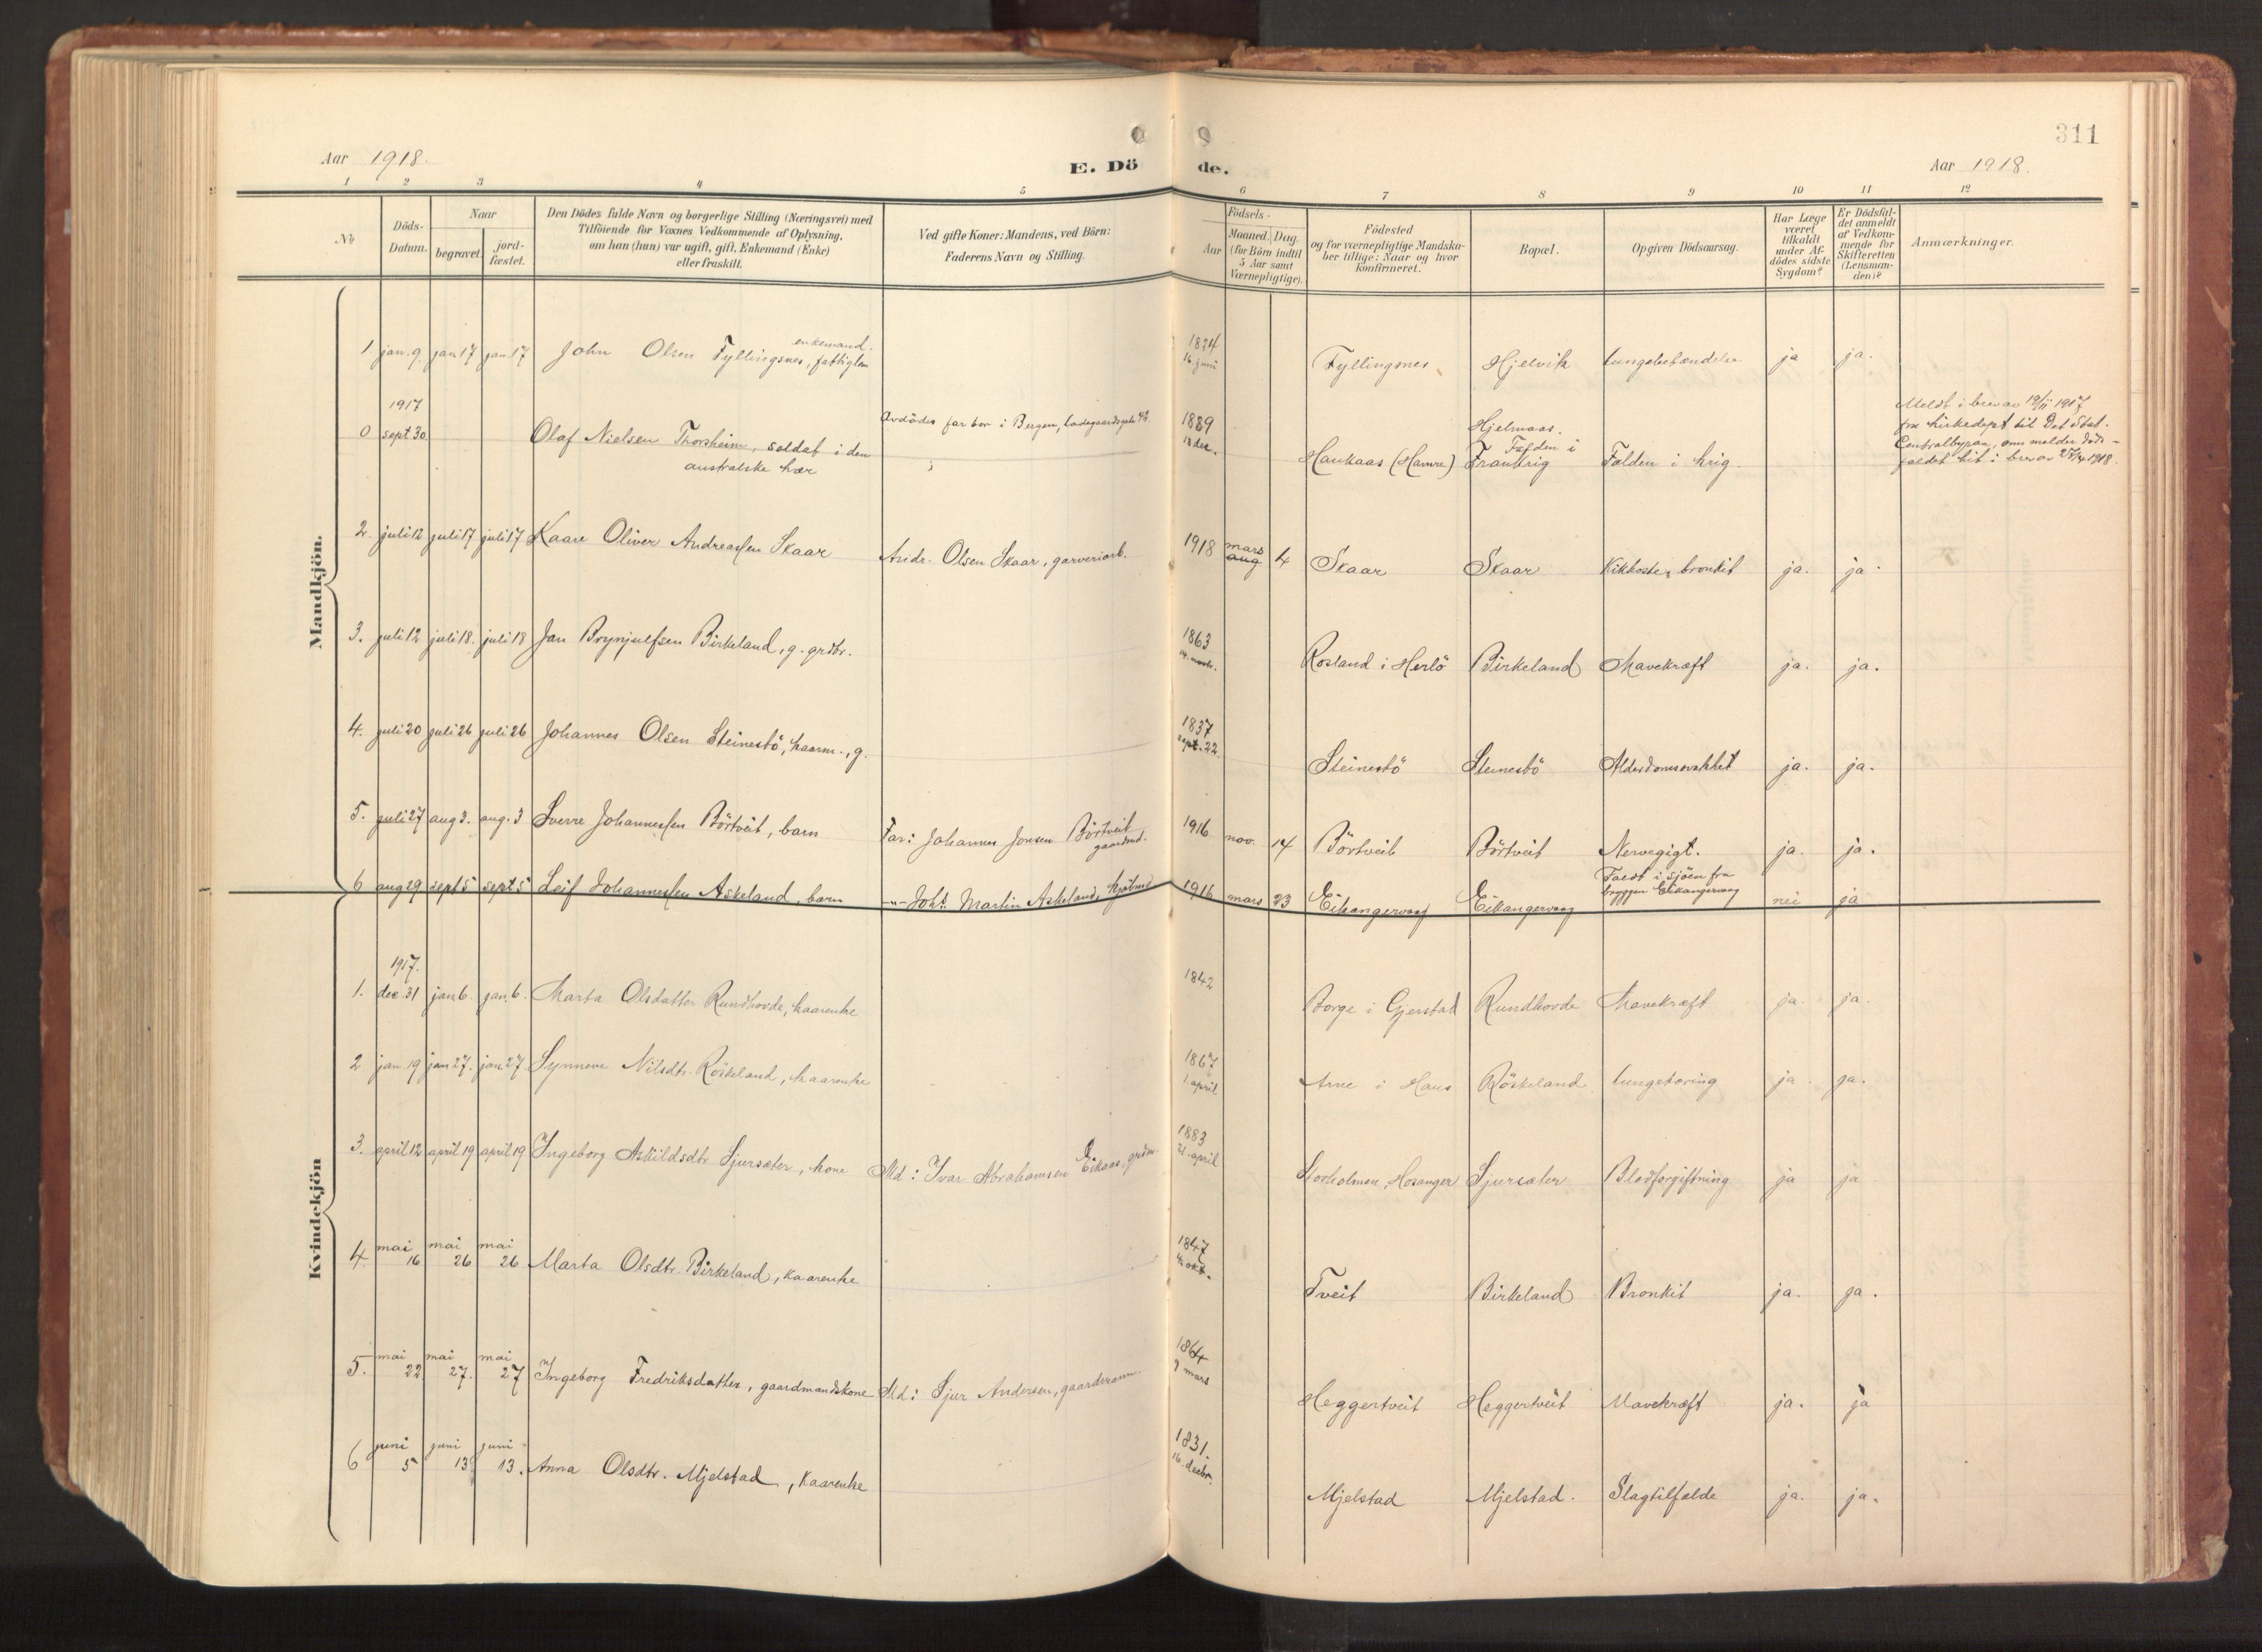 311
Aar 1918.
E. Dö de.
Aar 1918.
1 2 3 4 5 6 7 8 9 10 11 12
No
Döds-Datum.
Naar
begravet.
jord-fæstet.
Den Dödes fulde Navn og borgerlige Stilling (Næringsvei) med
Tilföiende for Voxnes Vedkommende af Oplysning,
om han (hun) var ugift, gift, Enkemand (Enke)
eller fraskilt.
Ved gifte Koner: Mandens, ved Börn:
Faderens Navn og Stilling.
Födsels-
Aar
Maaned. Dag.
(for Börn indtil
5 Aar samt
Værnepligtige).
Födested
og for værnepligtige Mandska-
ber tillige: Naar og hvor
konfirmeret.
Bopæl.
Opgiven Dödsaarsag.
Har Læge
været
tilkaldt
under Af-
dödes sidste
Sygdom?
Er Dödsfal-
det anmeldt
af Vedkom-
mende for
Skifteretten
(Lensman-
den)?
Anmærkninger.
Mandkjön.
1. jan. 9. jan. 17 jan. 17 John Olsen Fyllingsnes, fattiglem enkemand. 1834 16. juni Fyllingsnes Hjelvik lungebetændelse ja ja.
0 1917 sept. 30. Olaf Nielsen Thorsheim, soldat i den
australske hær
Avdödes far bor i Bergen, Ladegaardsgate 42. 1889 18 dec. Haukaas (Hamre) Hjelmaas. Falden i Frankrig Falden i krig.
Meldt i brev av 19/11 1917
fra kirkedept til Det Stat.
Centralbyraa, som melder döds-
faldet hit i brev av 27/4 1918.
2. juli 12 juli 17 juli 17 Kaare Oliver Andreassen Skaar Andr. Olsen Skaar, garveriarb. 1918 mars aug 4 Skaar Skaar Kikhoste, bronkit ja. ja.
3. juli 12 juli 18. juli 18 Jan Brynjulfsen Birkeland, g. grdbr. 1863 14. novb. Rosland i Herlö Birkeland Mavekræft ja. ja.
4. juli 20 juli 26 juli 26 Johannes Olsen Steinestö, kaarm., g. 1837 sept. 22. Steinestö Steinestö Alderdomssvakhet ja. ja.
5. juli 27 aug 3. aug. 3 Sverre Johannessen Börtveit, barn Far: Johannes Jonsen Börtveit gaardmd. 1916 nov. 14 Börtveit Börtveit Nervegigt. ja. ja.
6 aug 29 sept 5 sept 5 Leif Johannessen Askeland, barn -"- Johs. Martin Askeland, 1916 mars 23 Eikangervaag Eikangervaag Faldt i sjöen fra
bryggen Eikangervaag nei ja
Kvindekjön
1. 1917. dec. 31 jan 6. jan. 6. Marta Olsdatter Rundhovde, kaarenke 1842 Borge i Gjerstad Rundhovde Mavekræft ja. ja.
2 jan. 19 jan 27. jan. 27 Synneve Nilsdtr. Röskeland, kaarenke 1867 1. april Arne i Haus Röskeland lungetæring ja ja.
3. april 12 april 19 april 19 Ingeborg Askildsdtr Sjursæter, kone Md: Ivar Abrahamsen Eikaas, grdm. 1883 21. april Storholmen, Hosanger Sjursæter Blodforgiftning ja ja
4. mai 16 mai 26 mai 26 Marta Olsdtr. Birkeland, kaarenke 1847 okt. Tveit Birkeland Bronkit ja. ja.
5. mai 22 mai 27. mai 27 Ingeborg Fredriksdatter, gaardmandskone Md: Sjur Andersen, gaardmann. 1864 9 mars Heggertveit Heggertveit Mavekræft ja. ja
6 juni 5 juni 13. juni 13. Anna Olsdtr. Mjelstad, kaarenke 1831. 16. decbr. Mjelstad Mjelstad. Slagtilfælde ja. ja.